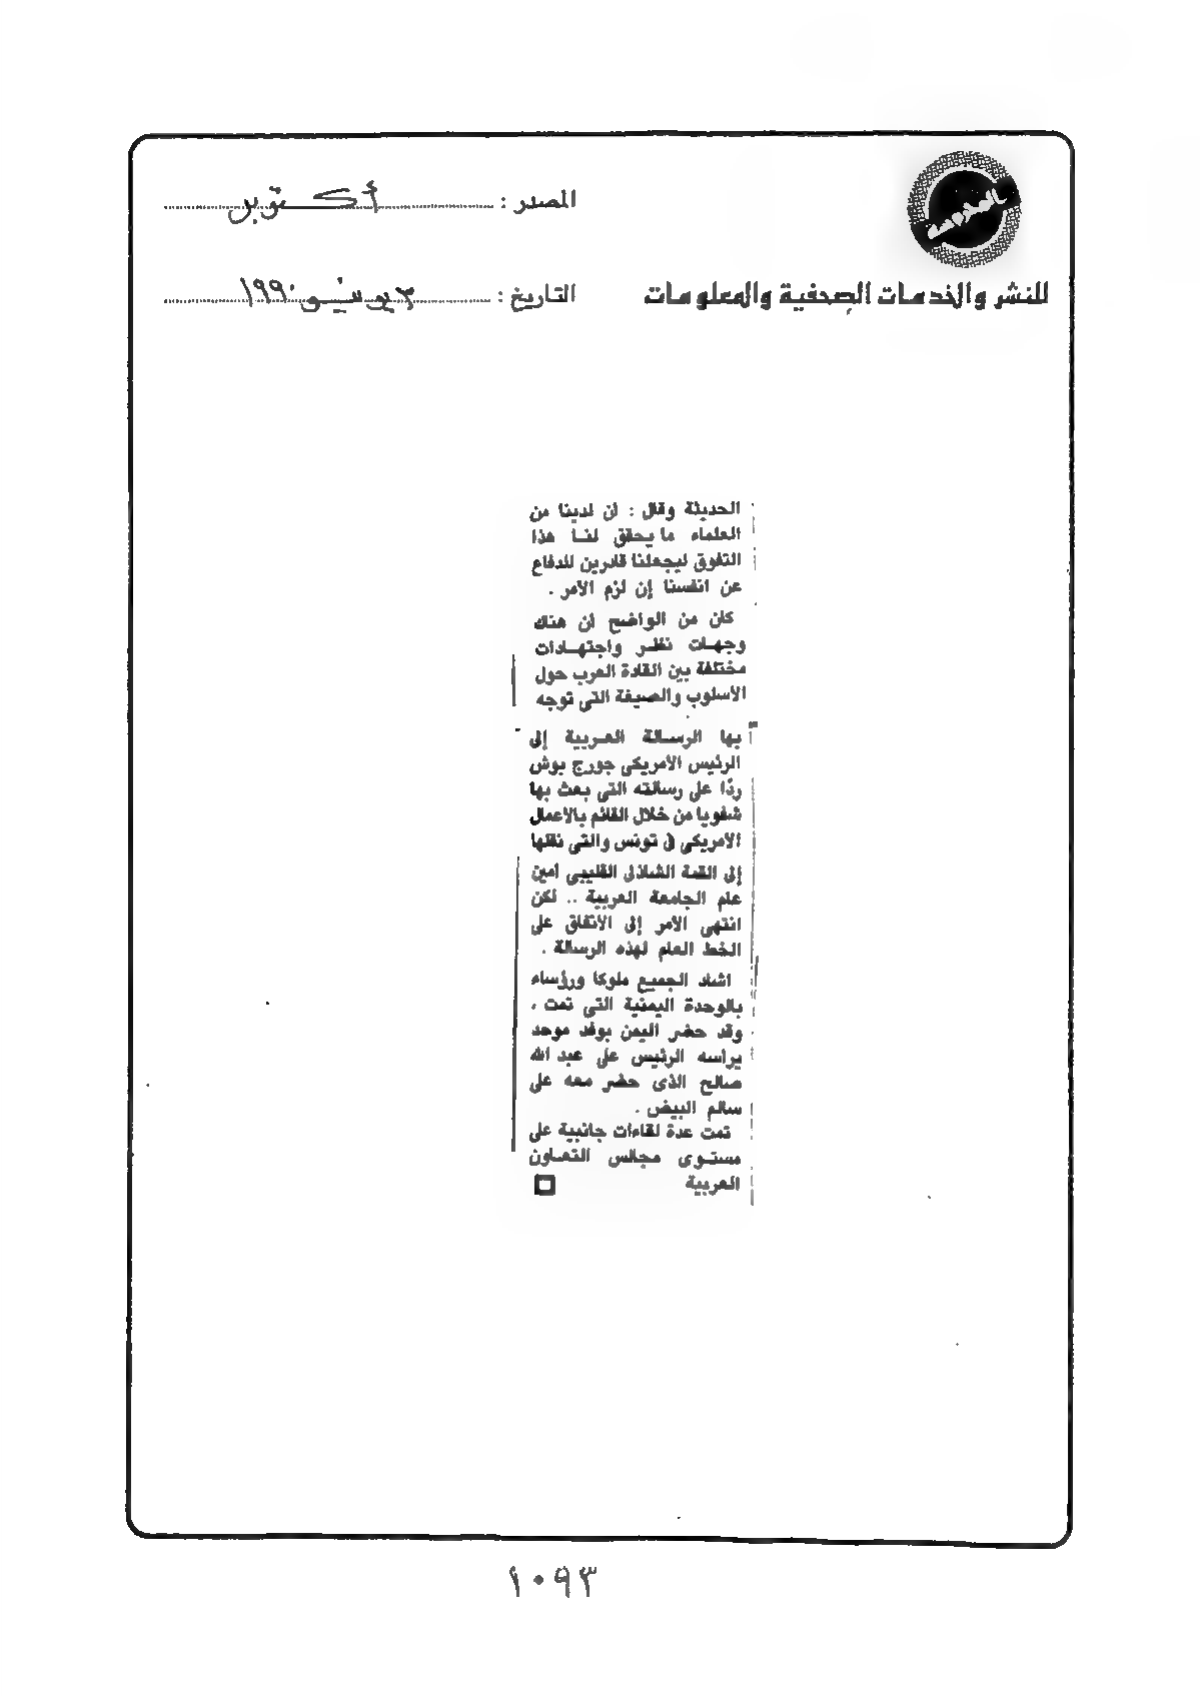 المصدر : أكتوبر
للنشر والخدمات الصحفية والمعلومات
التاريخ : ٣ يونيو ١٩٩٠
الحديثة وقال : ان لدينا من
العلماء ما يحقق لنا هذا
التفوق ليجعلنا قادرين للدفاع
عن انفسنا إن لزم الأمر .
كان من الواضح ان هناك
وجهات نظر واجتهادات
مختلفة بين القادة العرب حول
الأسلوب والصيغة التى توجه
بها الرسالة العربية إلى
الرئيس الأمريكى جورج بوش
ردًا على رسالته التى بعث بها
شفويا من خلال القائم بالأعمال
الأمريكى فى تونس والتى نقلها
إلى القمة الشاذلى القليبى أمين
عام الجامعة العربية .. لكن
انتهى الأمر إلى الاتفاق على
الخط العام لهذه الرسالة .
اشاد الجميع ملوكا ورؤساء
بالوحدة اليمنية التى تمت ،
وقد حضر اليمن بوفد موحد
يرأسه الرئيس على عبد الله
صالح الذى حضر معه على
سالم البيض .
تمت عدة لقاءات جانبية على
مستوى مجالس التعاون
العربية
١٠٩٣